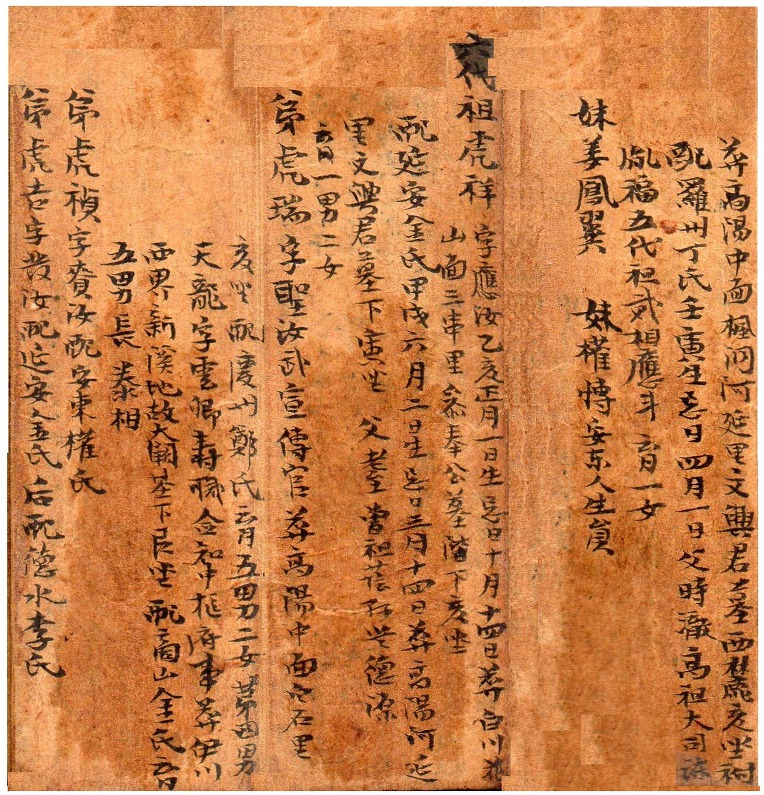 葬高陽中面楓洞河延里文興君墓西麓亥坐祔
配羅州丁氏壬寅生忌日四月一日父時瀗高祖大司諫
胤福五代祖贰相應斗 育一女
妹姜鳳翼 妹權愽安东人生員
六代祖虎祥 字應汝乙亥正月一日生忌日十月十四日葬白川花
山面三串里叅奉公墓階下亥坐
配延安金氏甲戌六月二日生忌日三月十四日葬高陽河延
里文興君墓下寅坐 父 曾祖 德源
育一男二女
弟虎瑞字聖汝武宣傳官葬高陽中面穴石里
亥坐配慶州鄭氏育五男二女第四男
天龍字雲卿壽職僉知中樞府事葬伊川
西界新溪地故大闕基下艮坐配商山金氏育
五男長泰相
弟虎禎字賚汝配安東權氏
弟虎吉字發汝配延安金氏后配德水李氏